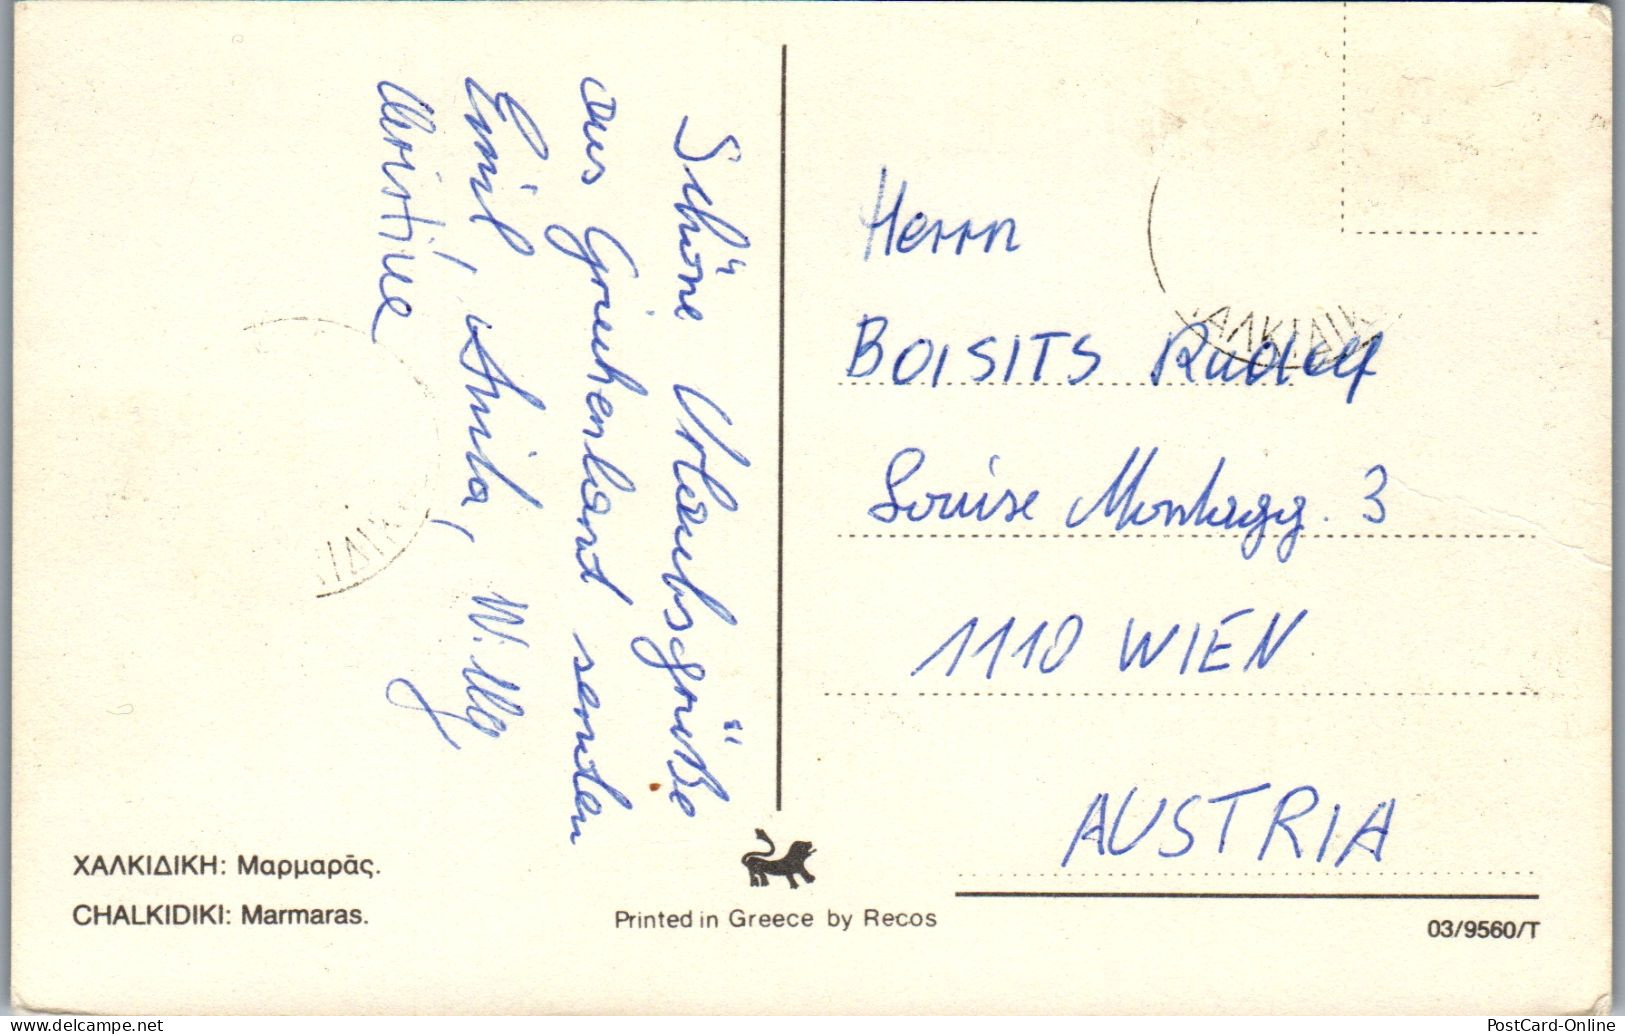 Schöne Urlaubsgrüße
aus Griechenland senden
Emil, Anita, Willy
Christine
Herrn
BOISITS Rudolf
Louise Montagg. 3
1110 WIEN
AUSTRIA
ΧΑΛΚΙΔΙΚΗ: Μαρμαρᾶς.
CHALKIDIKI: Marmaras.
Printed in Greece by Recos
03/9560/T
PostCard-Online